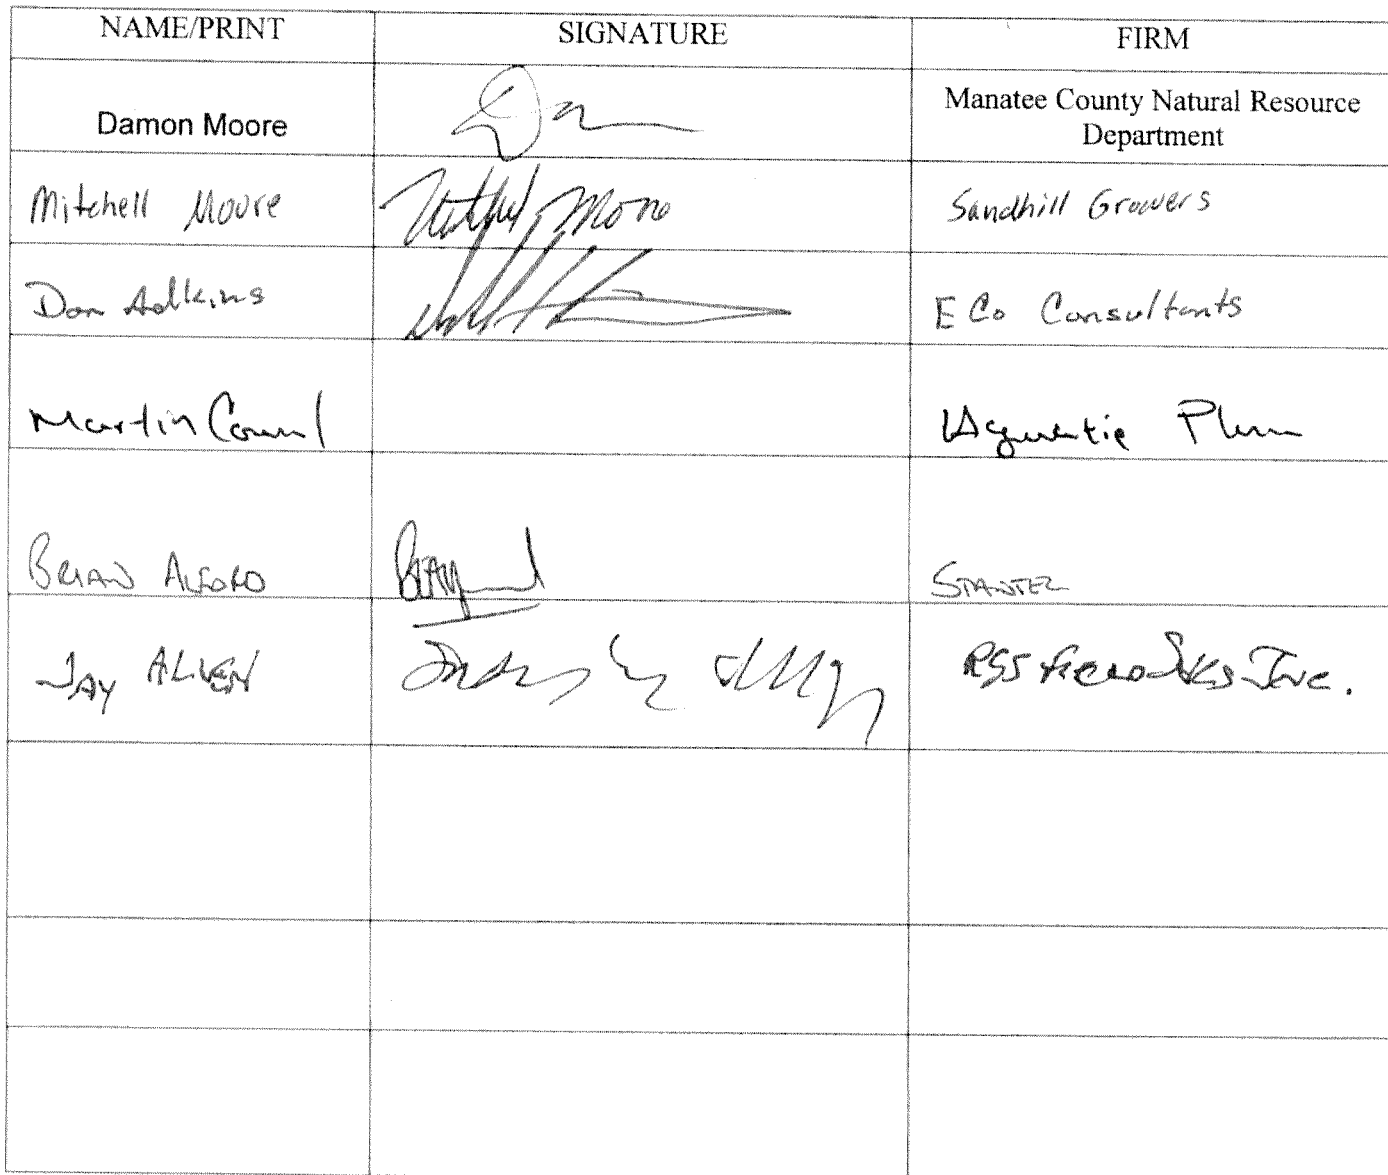 NAME/PRINT SIGNATURE FIRM
Damon Moore Manatee County Natural Resource
Department
Mitchell Moore Mitchell Moore Sandhill Growers
Don Adkins E Co Consultants
Martin Aquatic
BRIAN ALFORD STANTEC
JAY ALLEN RSS Inc.